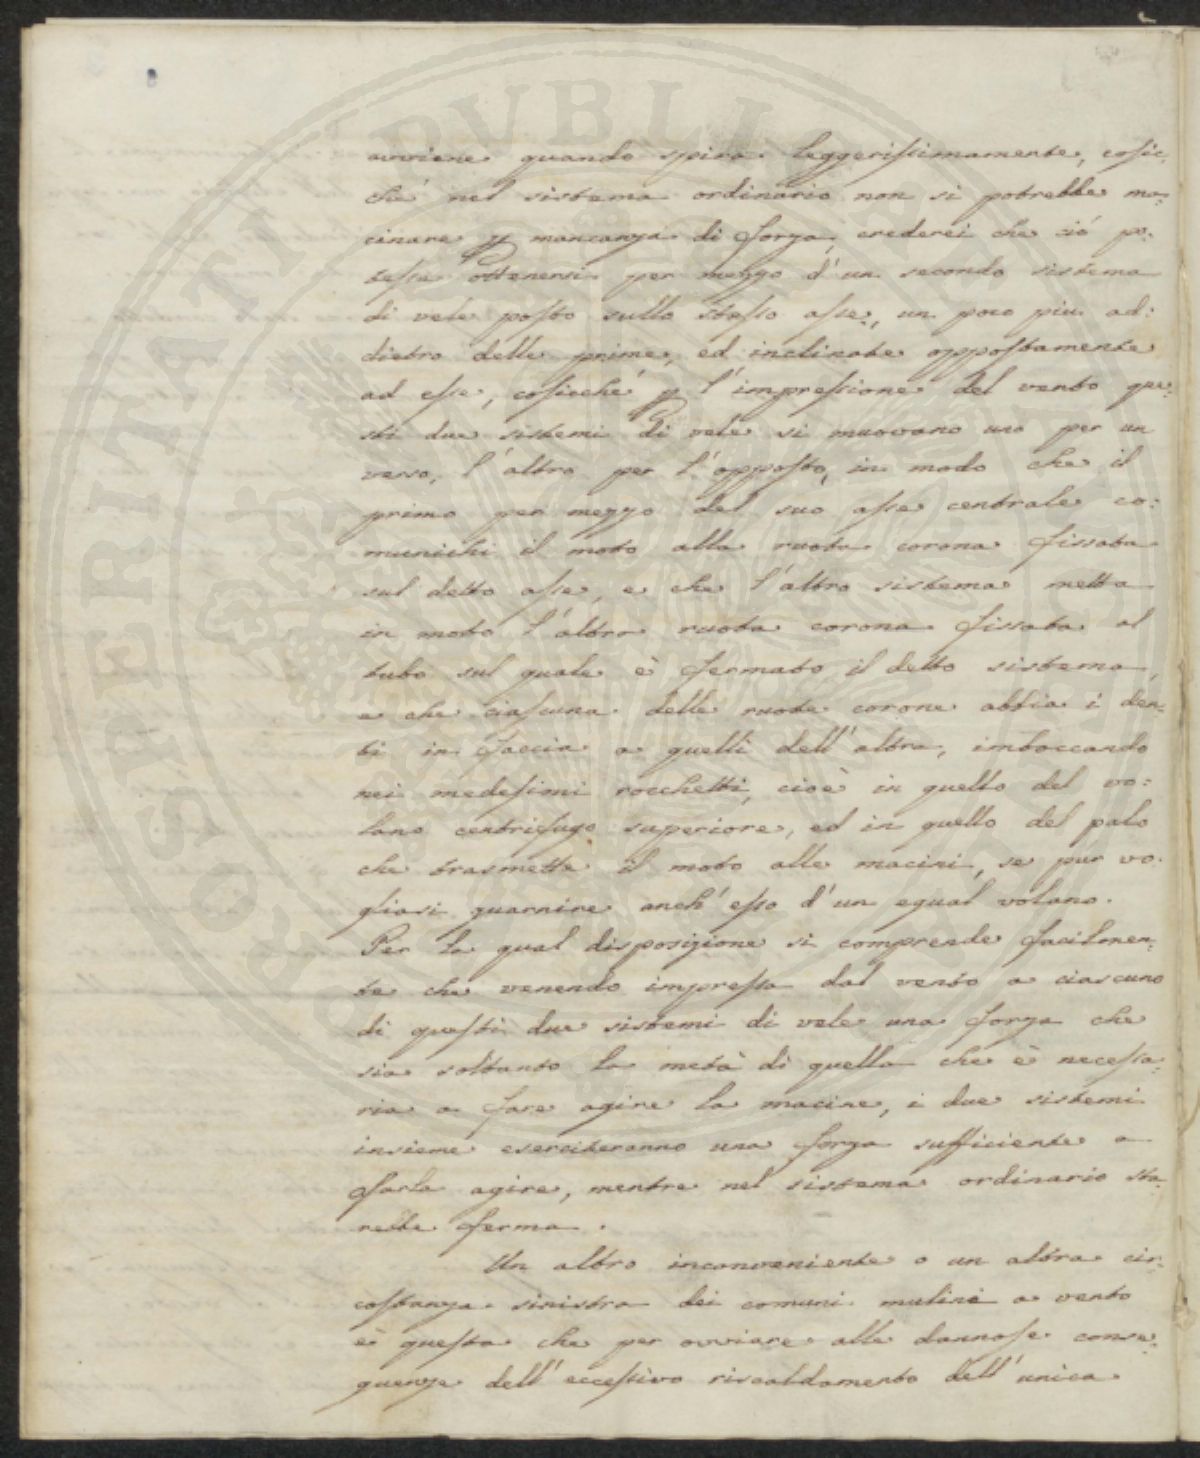 PVBLICAE
PROSPERITATI
avviene quando spira leggerissimamente, cosic:
ché nel sistema ordinario non si potrebbe ma:
cinare p mancanza di forza, crederei che ciò po:
tesse ottenersi per mezzo d'un secondo sistema
di vele posto sullo stesso asse, un poco più ad:
dietro delle prime, ed inclinate oppostamente
ad esse, cosicché p l'impressione del vento que:
sti due sistemi di vele si muovano uno per un
verso, l'altro per l'opposto, in modo che il
primo per mezzo del suo asse centrale co:
munichi il moto alla ruota corona fissata
sul detto asse, e che l'altro sistema metta
in moto l'altra ruota corona fissata al
tubo sul quale è fermato il detto sistema,
e che ciascuna delle ruote corone abbia i den:
ti in faccia a quelli dell'altra, imboccando
nei medesimi rocchetti, cioè in quello del vo:
lano centrifugo superiore, ed in quello del palo
che trasmette il moto alle macini, se pur vo:
gliasi guarnire anch'esso d'un egual volano.
Per la qual disposizione si comprende facilmen:
te che venendo impressa dal vento a ciascuno
di questi due sistemi di vele una forza che
sia soltanto la metà di quella che è necessa:
ria a fare agire la macine, i due sistemi
insieme eserciteranno una forza sufficiente a
farla agire, mentre nel sistema ordinario sta:
rebbe ferma.
Un altro inconveniente o un altra cir:
costanza sinistra dei comuni mulini a vento
è questa che per ovviare alle dannose conse:
guenze dell'eccessivo riscaldamento dell'unica